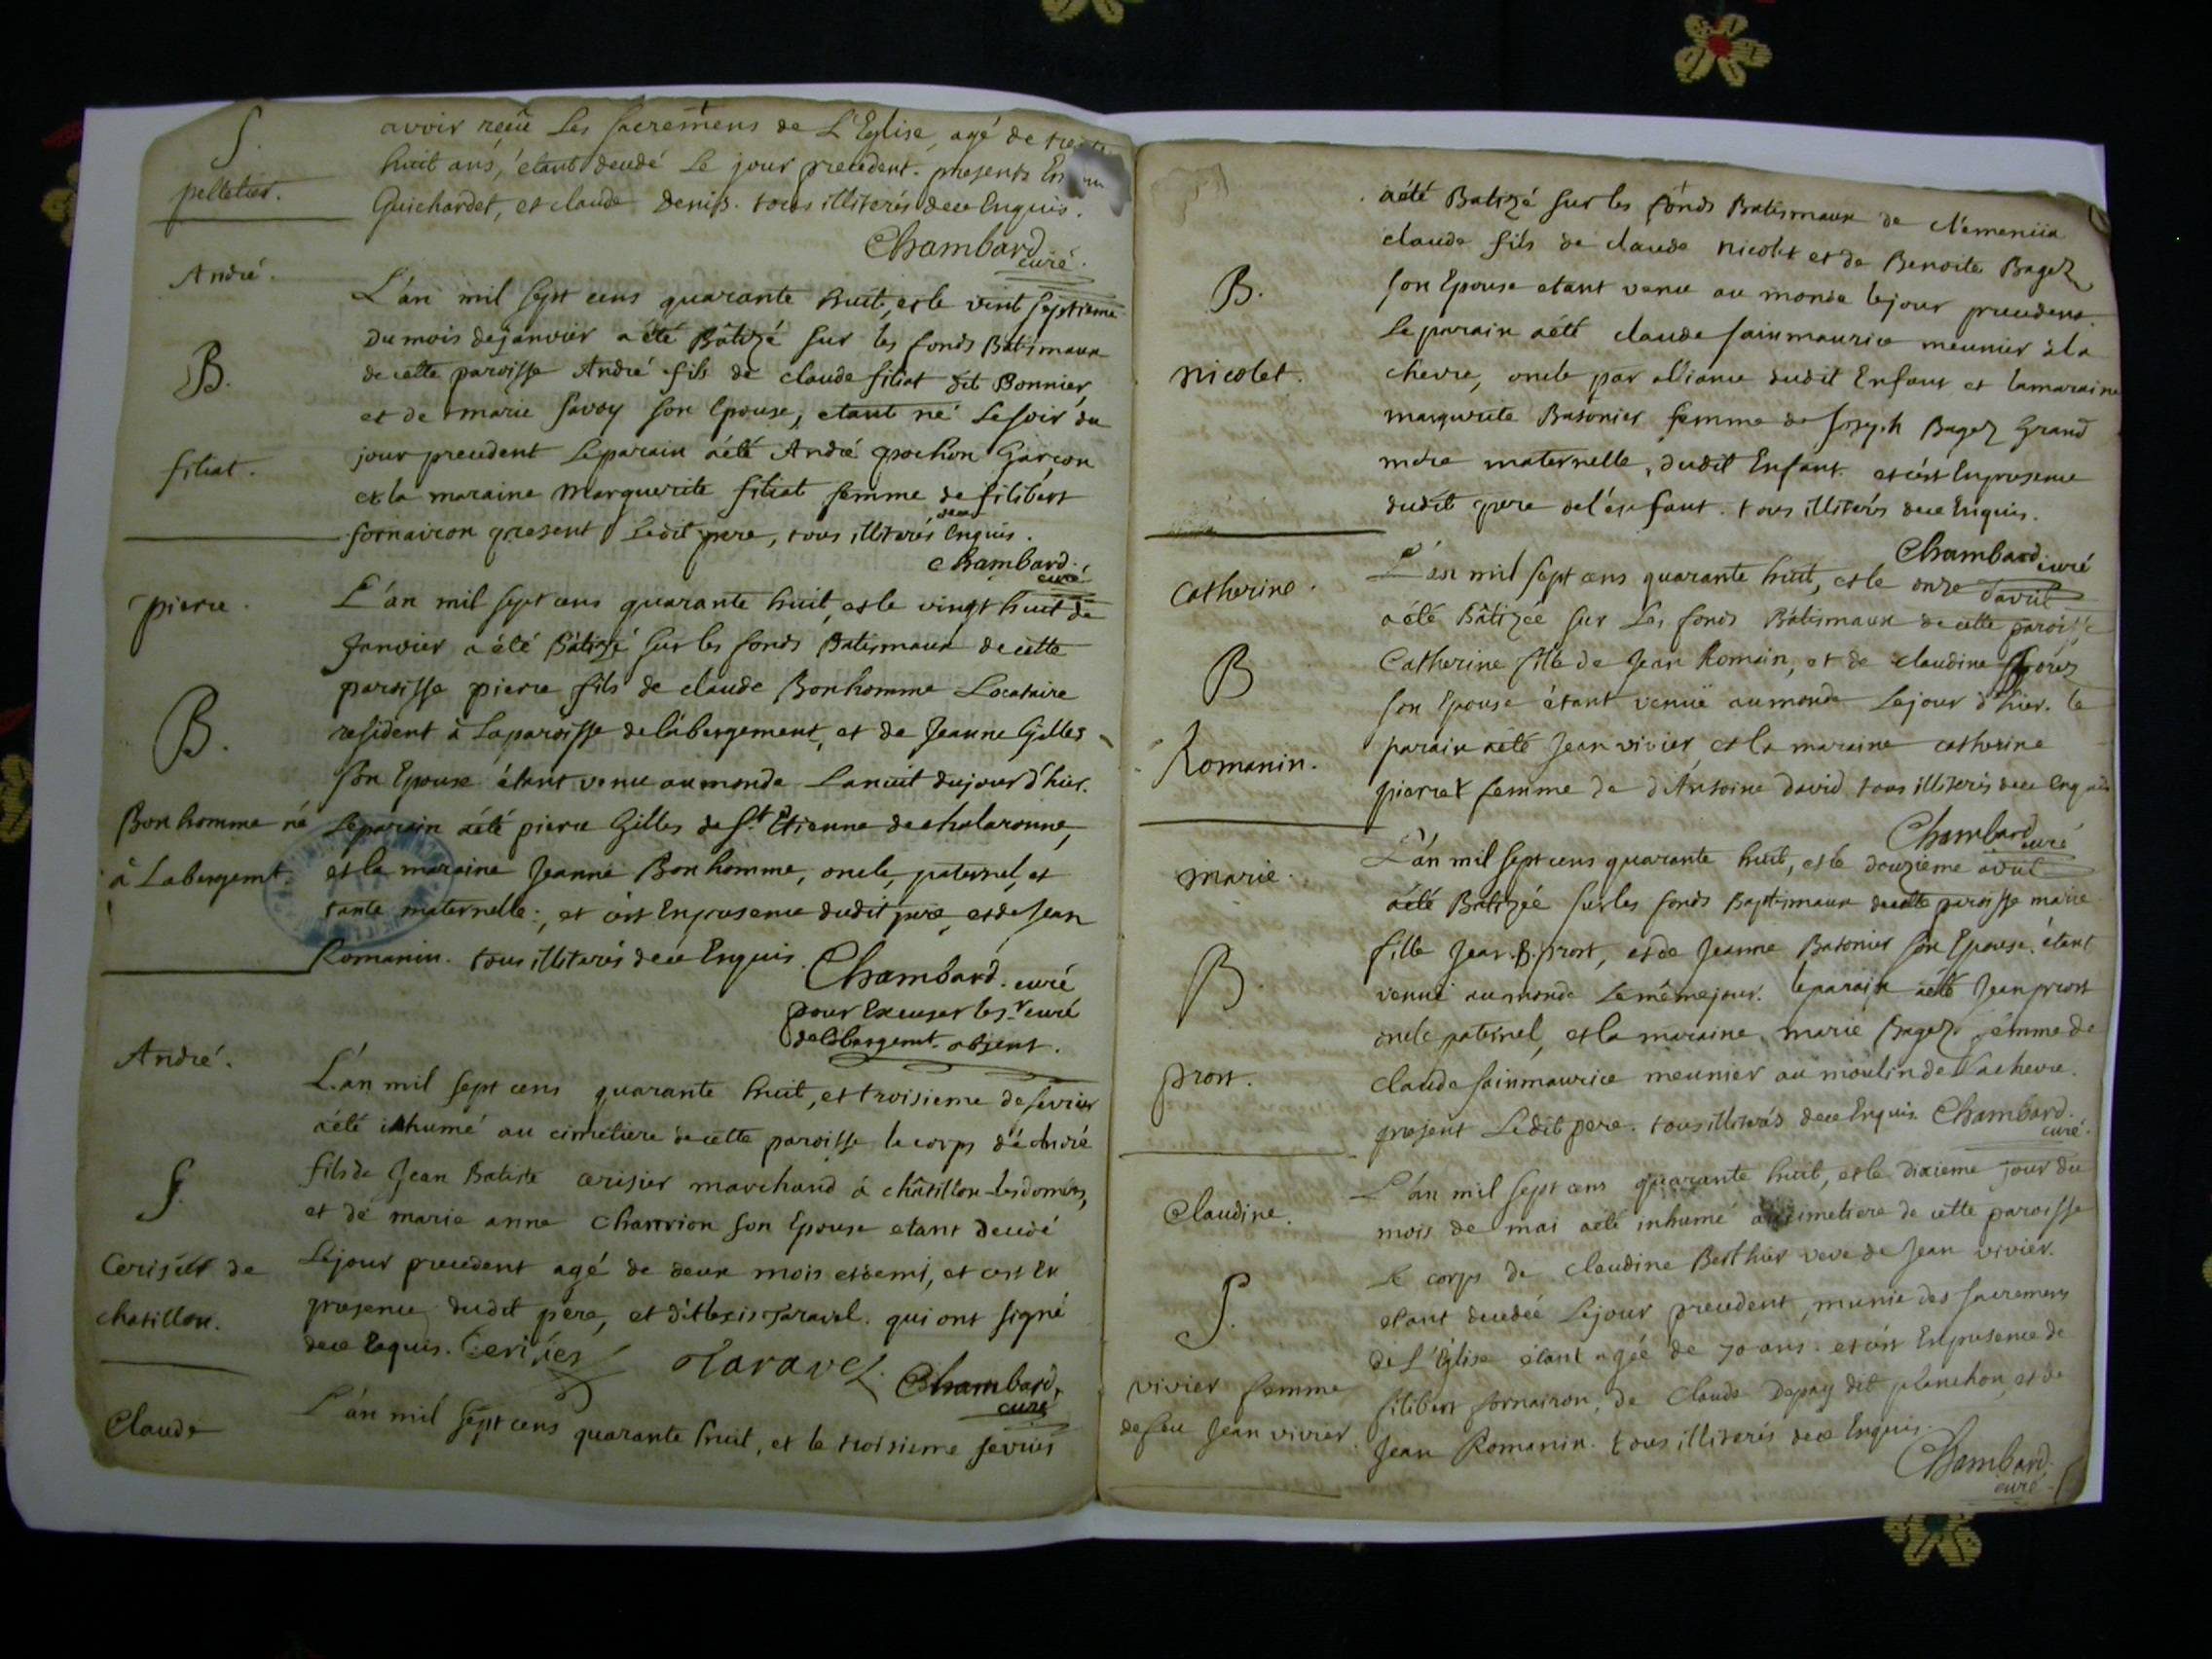 S.
pelletier.
avoir reçû Les sacremens de L'Eglise, agé de trente
huit ans, étant decedé Le jour precedent. presents
Guichardet, et claude Denis. tous illiterés de ce Enquis.
Chambard curé.
André.
B.
filiat.
L'an mil sept cens quarante huit, et le vint septieme
du mois de janvier a été Bâtizé sur les fonds Batismaux
de cette paroisse André fils de claude filiat dit Bonnier,
et de marie Savoy son Epouse, etant né Le soir du
jour precedent Le parain a été André prochon Garçon
et la maraine Marguerite filiat femme de filibert
fornairon present Ledit pere, tous illiterés de ce Enquis.
Chambard. curé
pierre.
B.
Bonhomme né
à Labergemt.
L'an mil sept cens quarante huit, et le vingt huit de
Janvier a été Bâtizé sur les fonds Batismaux de cette
paroisse pierre fils de claude Bonhomme Locataire
resident à La paroisse de labergement, et de Jeanne Gilles
son Epouse étant venu au monde La nuit du jour d'hier.
Le parain a été pierre Gilles de St. Etienne de chalaronne,
et la maraine Jeanne Bonhomme, oncle, paternel, et
tante maternelle: et c'est En presence dudit pere, et de Jean
Romanin. tous illiterés de ce Enquis.
Chambard. curé
pour Excuser le sr. curé
de labergemt. absent.
André.
S.
Cerisier de
chatillon.
L'an mil sept cens quarante huit, et troisieme de fevrier
a été inhumé au cimetiere de cette paroisse le corps d'André
fils de Jean Batiste cerisier marchand à châtillon-les domb
et de marie anne Charvion son Epouse etant decedé
Le jour precedent agé de deux mois et demi, et c'est En
presence dudit pere, et d'Alexis Taravel. qui ont signé
de ce Requis. Cerisier Taravel. Chambard, curé
Claude
L'an mil sept cens quarante huit, et le troisieme fevrier
B.
nicolet.
a été Batizé sur les fonds Batismaux de
claude fils de claude nicolet et de Benoite Bagez
son Epouse etant venu au monde le jour precedent.
Le parain a été claude sainmaurice meunier à la
chevre, oncle par alliance dudit Enfant et la maraine
marguerite Batonier femme de Joseph Bagez Grand
mere maternelle, dudit Enfant. et c'est En presence
dudit pere de l'enfant. tous illiterés de ce Enquis.
Chambard. curé
Catherine.
B
Romanin.
L'an mil sept cens quarante huit, et le onze d'avril
a été Bâtizée sur Les fonds Bâtismaux de cette paroisse
Catherine fille de Jean Romain, et de claudine
son Epouse étant venuë au monde Le jour d'hier. le
parain a été Jean vivier, et la maraine catherine
pierret femme de d'Antoine David tous illiterés de ce Enquis
Chambard curé
marie.
B.
prost.
L'an mil sept cens quarante huit, et le douzieme avril
a été Bâtizée sur les fonds Baptismaux de cette paroisse marie
fille Jean.B. prost, et de Jeanne Batonier son Epouse. étant
venuë au monde Le même jour. le parain a été Jean prost
oncle paternel, et la maraine marie Bagez femme de
claude sainmaurice meunier au moulin de Lachevre.
present Ledit pere. tous illiterés de ce Enquis. Chambard. curé.
Claudine.
S.
vivier femme
de feu Jean vivier.
L'an mil sept cens quarante huit, et le dixieme jour du
mois de mai a été inhumé au cimetiere de cette paroisse
Le corps de claudine Berthier veve de Jean vivier.
etant decedée Le jour precedent, munie des sacremens
de L'Eglise étant agée de 70 ans. et c'est En presence de
filibert fornairon, de claude Depay dit planchon, et de
Jean Romanin. tous illiterés de ce Enquis.
Chambard. curé.